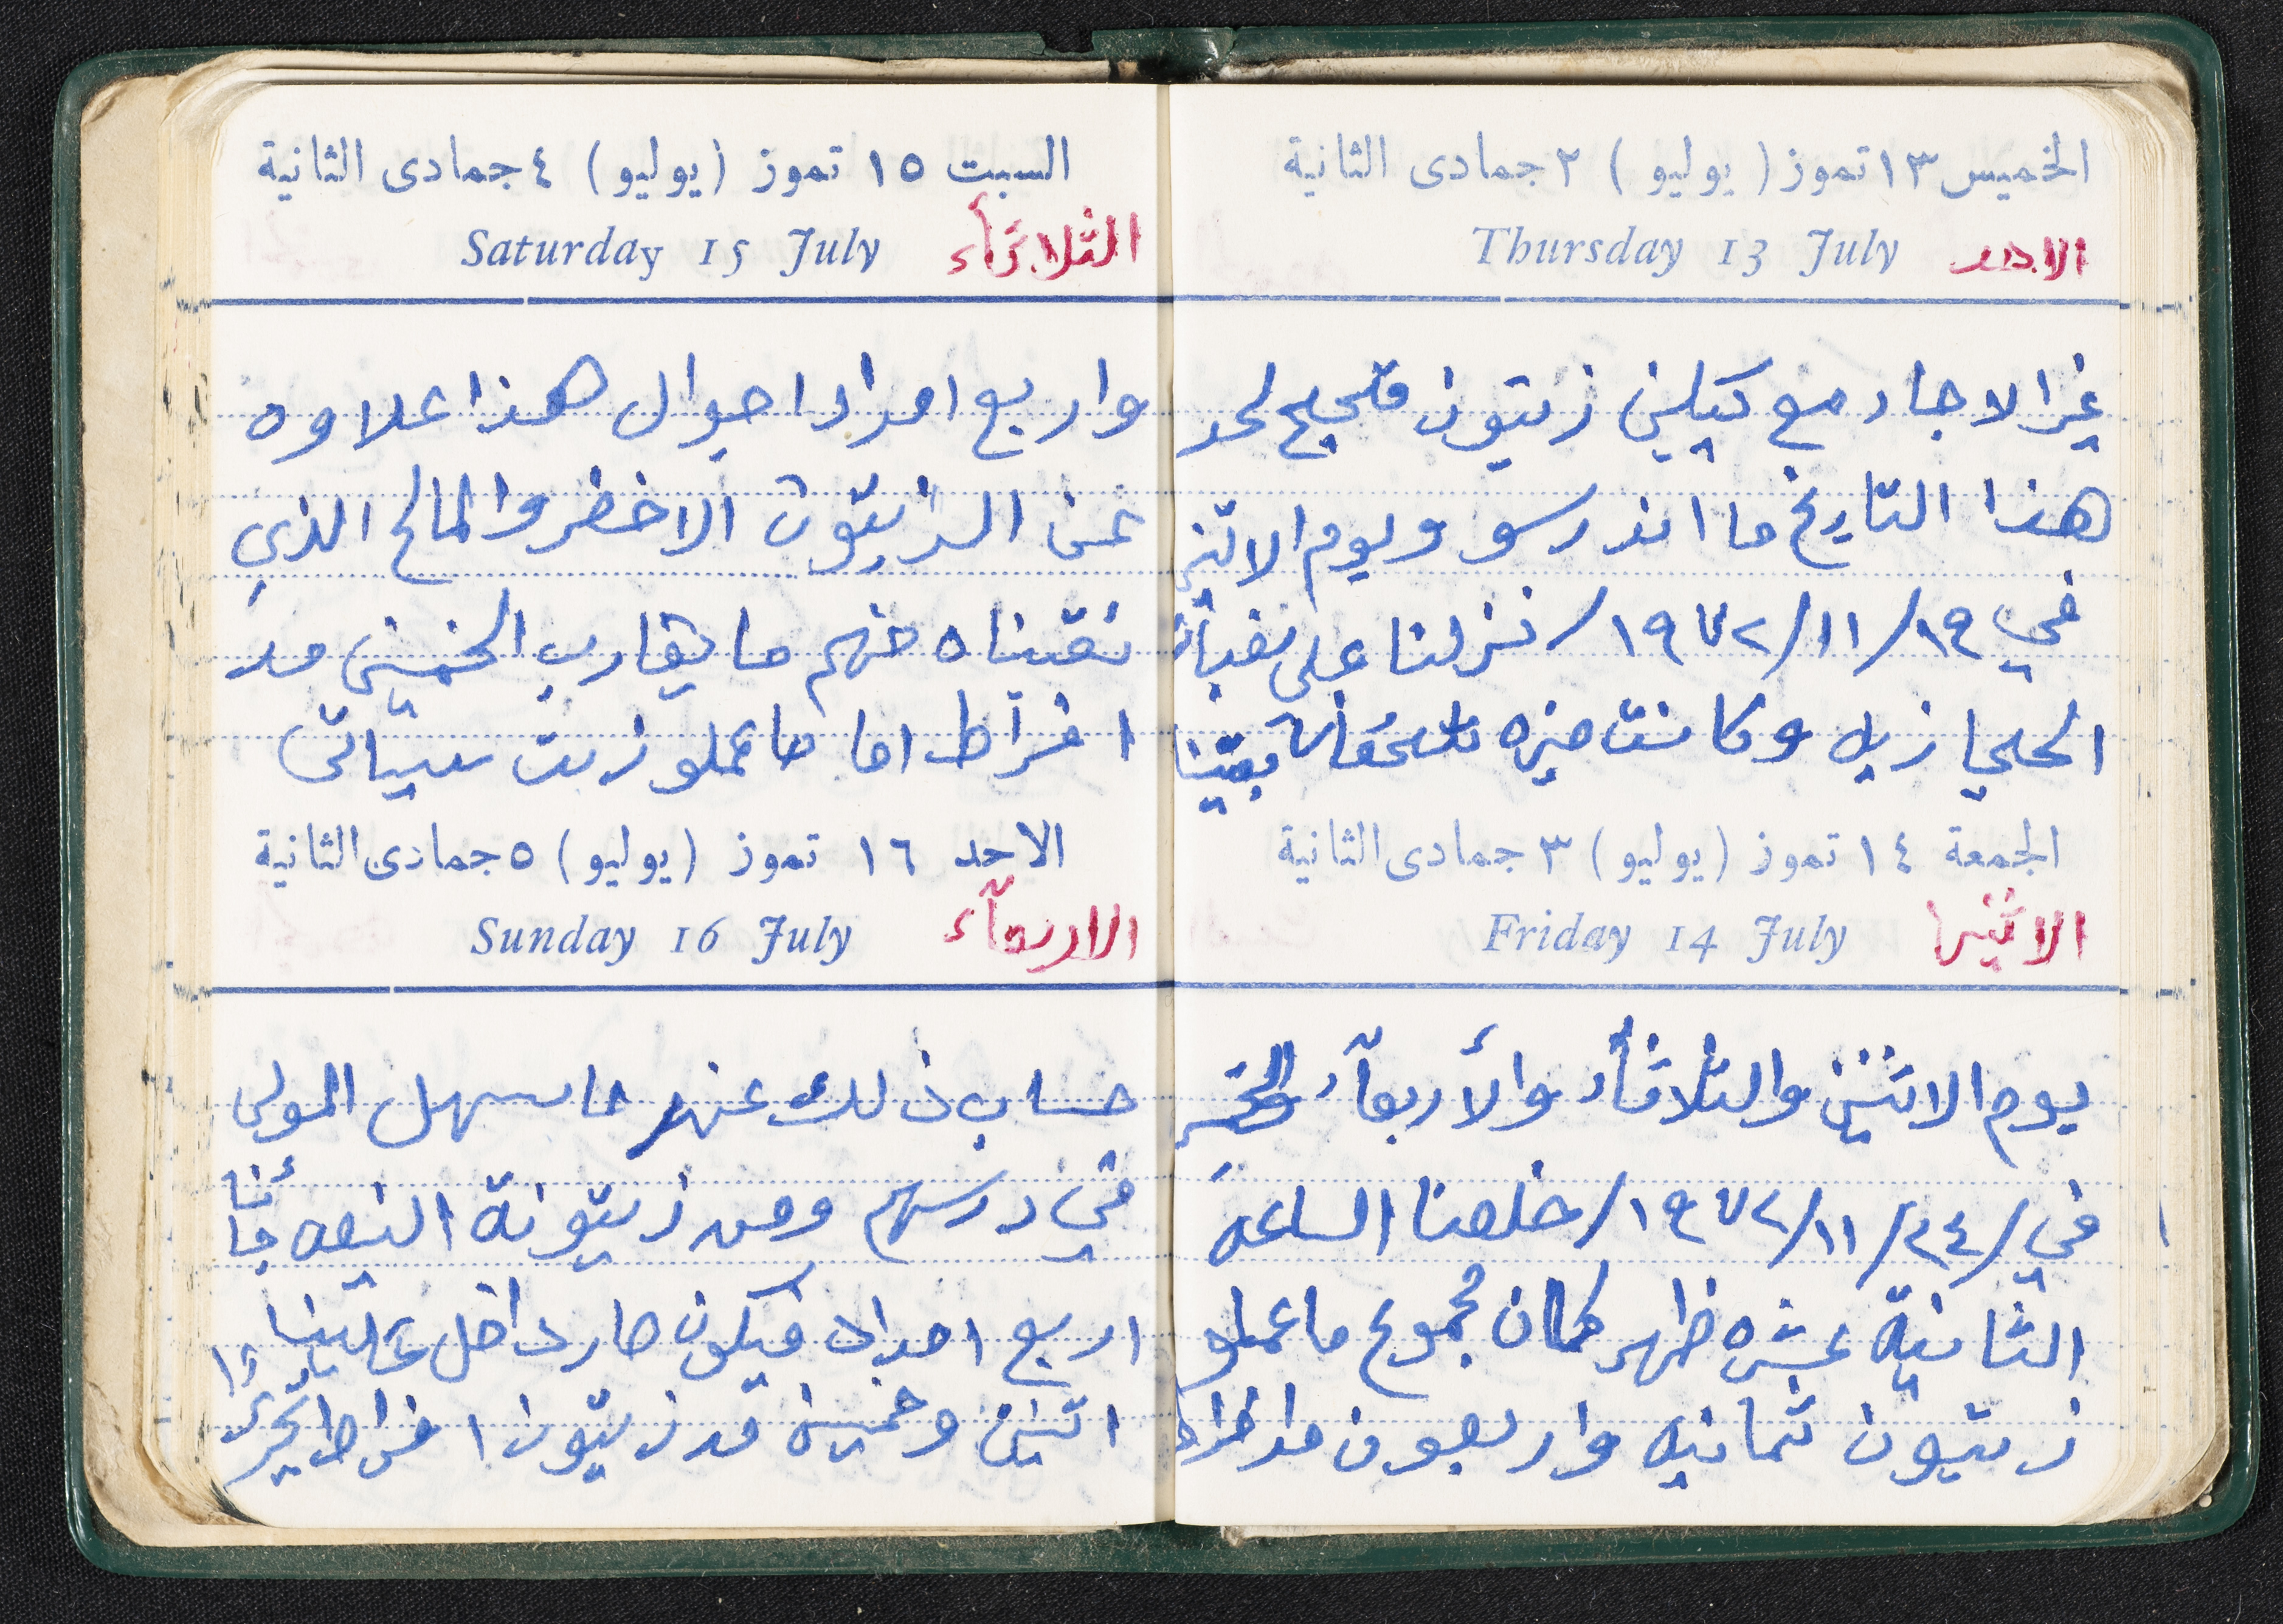 الخميس ١٣ تموز (يوليو) ٢ جمادى الثانية
الاحد Thursday 13 July
غير الاجار مع كيلين زيتون فتجيح لحد
هذا التاريخ ما اندرسو ويوم الاثنين
في ١٩/١١/١٩٧٢/ نزلنا على
وكانت بقينا
الجمعة ١٤ تموز (يوليو) ٣ جمادى الثانية
الاثنين Friday 14 July
يوم الاثنين والثلاثاء والأربعآء
في/٢٤/١١/١٩٧٢/ خلصنا الساعه
الثانية عشره ظهر كمان مجموع ما عملو
زيتون ثمانيه واربعون مد افراط
السبت ١٥ تموز (يوليو) ٤ جمادى الثانية
الثلاثآء Saturday 15 July
واربع امداد احوال هذا علاوه
عن الزيتون الاخضر والمالح الذي
نقيناه منهم ما يقارب الخمسين مد
افراط اما ما عملو زيت سيأتي
الاحد ١٦ تموز (يوليو) ٥ جمادى الثانية
الاربعآء Sunday 16 July
حساب ذلك عندما يسهل المولى
في درسهم ومن زيتونة النبعه جأنا
اربع امداد فيكون صار داخل علينا
اثنين وخمسين مد زيتون افراط